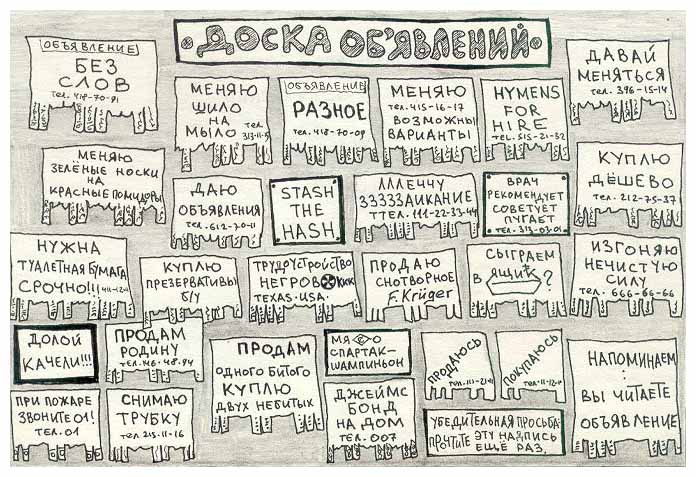 ДОСКА ОБ'ЯВЛЕНИЙ
ОБЪЯВЛЕНИЕ
БЕЗ
СЛОВ
ТЕЛ. 418-70-91
МЕНЯЮ
ШИЛО
НА
МЫЛО ТЕЛ.
313-11-5
ОБЪЯВЛЕНИЕ
РАЗНОЕ
ТЕЛ. 418-70-09
МЕНЯЮ
ТЕЛ. 415-16-17
ВОЗМОЖНЫ
ВАРИАНТЫ
HYMENS
FOR
HIRE
TEL. 515-21-52
ДАВАЙ
МЕНЯТЬСЯ
ТЕЛ. 396-15-14
МЕНЯЮ
ЗЕЛЁНЫЕ НОСКИ
НА
КРАСНЫЕ ПОМИДОРЫ
ДАЮ
ОБЪЯВЛЕНИЯ
ТЕЛ. 612-70-11
STASH
THE
HASH
ЛЛЛЕЧЧУ
ЗЗЗЗЗАИКАНИЕ
ТТЕЛ. 111-22-33-44
ВРАЧ
РЕКОМЕНДУЕТ
СОВЕТУЕТ
ПУГАЕТ
ТЕЛ. 313-03-01
КУПЛЮ
ДЁШЕВО
ТЕЛ. 212-75-37
НУЖНА
ТУАЛЕТНАЯ БУМАГА
СРОЧНО!!!
КУПЛЮ
ПРЕЗЕРВАТИВЫ
Б/У
ТРУДОУСТРОЙСТВО
НЕГРОВ ККК
TEXAS. USA.
ПРОДАЮ
СНОТВОРНОЕ
F. Krüger
СЫГРАЕМ
В ЯЩИК?
ИЗГОНЯЮ
НЕЧИСТУЮ
СИЛУ
ТЕЛ. 666-66-66
ДОЛОЙ
КАЧЕЛИ!!!
ПРОДАМ
РОДИНУ
ТЕЛ. 146-48-94
ПРОДАМ
ОДНОГО БИТОГО
КУПЛЮ
ДВУХ НЕБИТЫХ
МЯСО
СПАРТАК-
ШАМПИНЬОН
ПРОДАЮСЬ
ПОКУПАЮСЬ
НАПОМИНАЕМ:
ВЫ ЧИТАЕТЕ
ОБЪЯВЛЕНИЕ
ПРИ ПОЖАРЕ
ЗВОНИТЕ 01!
ТЕЛ. 01
СНИМАЮ
ТРУБКУ
ТЕЛ. 215-11-16
ДЖЕЙМС
БОНД
НА ДОМ
ТЕЛ. 007
УБЕДИТЕЛЬНАЯ ПРОСЬБА:
ПРОЧТИТЕ ЭТУ НАДПИСЬ
ЕЩЁ РАЗ.